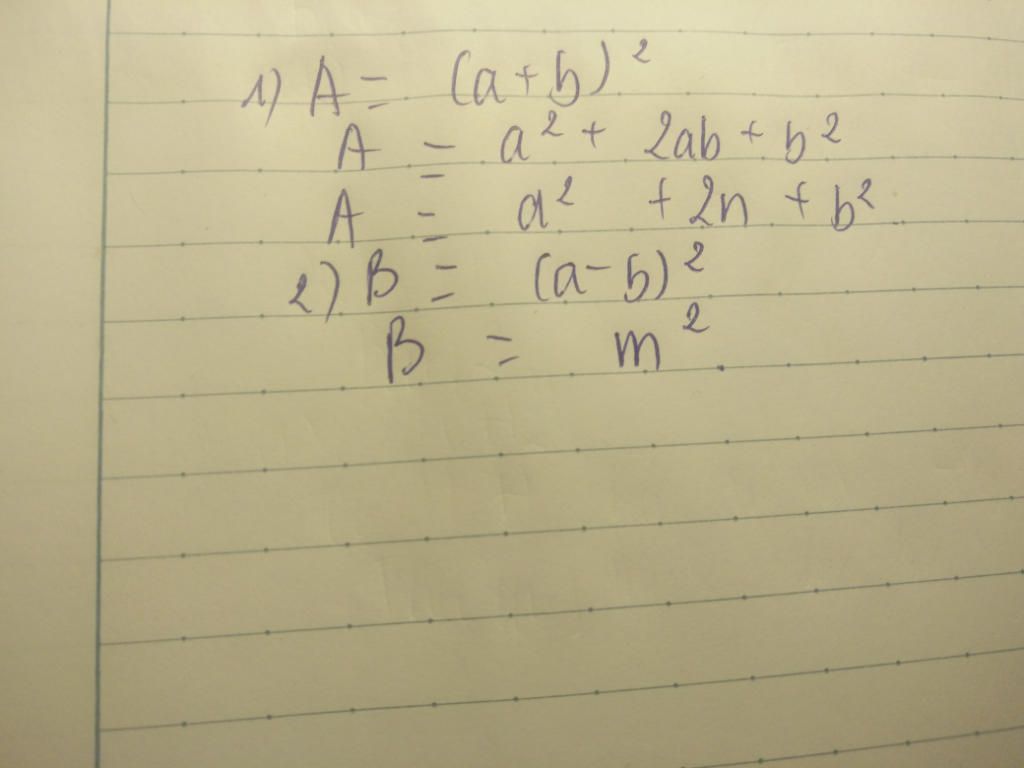 1) A = (a+b)²
A = a² + 2ab + b²
A = a² + 2n + b²
2) B = (a-b)²
B = m²